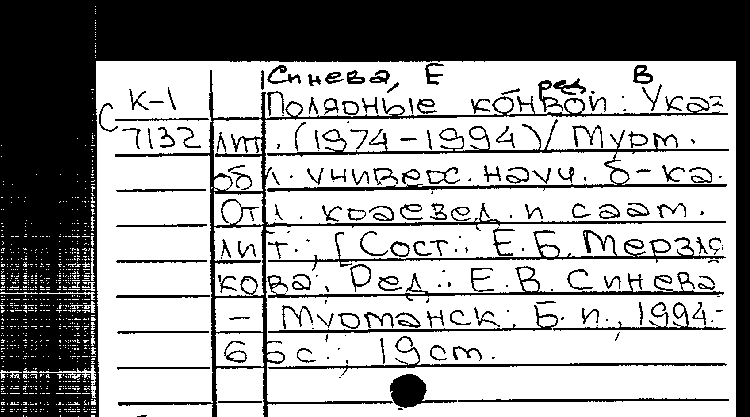 Синева, Е В
ред.
К-1 Полярные конвои: Указ
С 7132 лит. (1974-1994)/ Мурм.
обл. универс. науч. б-ка.
Отл. краевед. и саам.
лит.; [Сост.: Е.Б. Мерзля
кова; Ред.: Е.В. Синева
- Мурманск: Б.и., 1994.-
66с.; 19см.